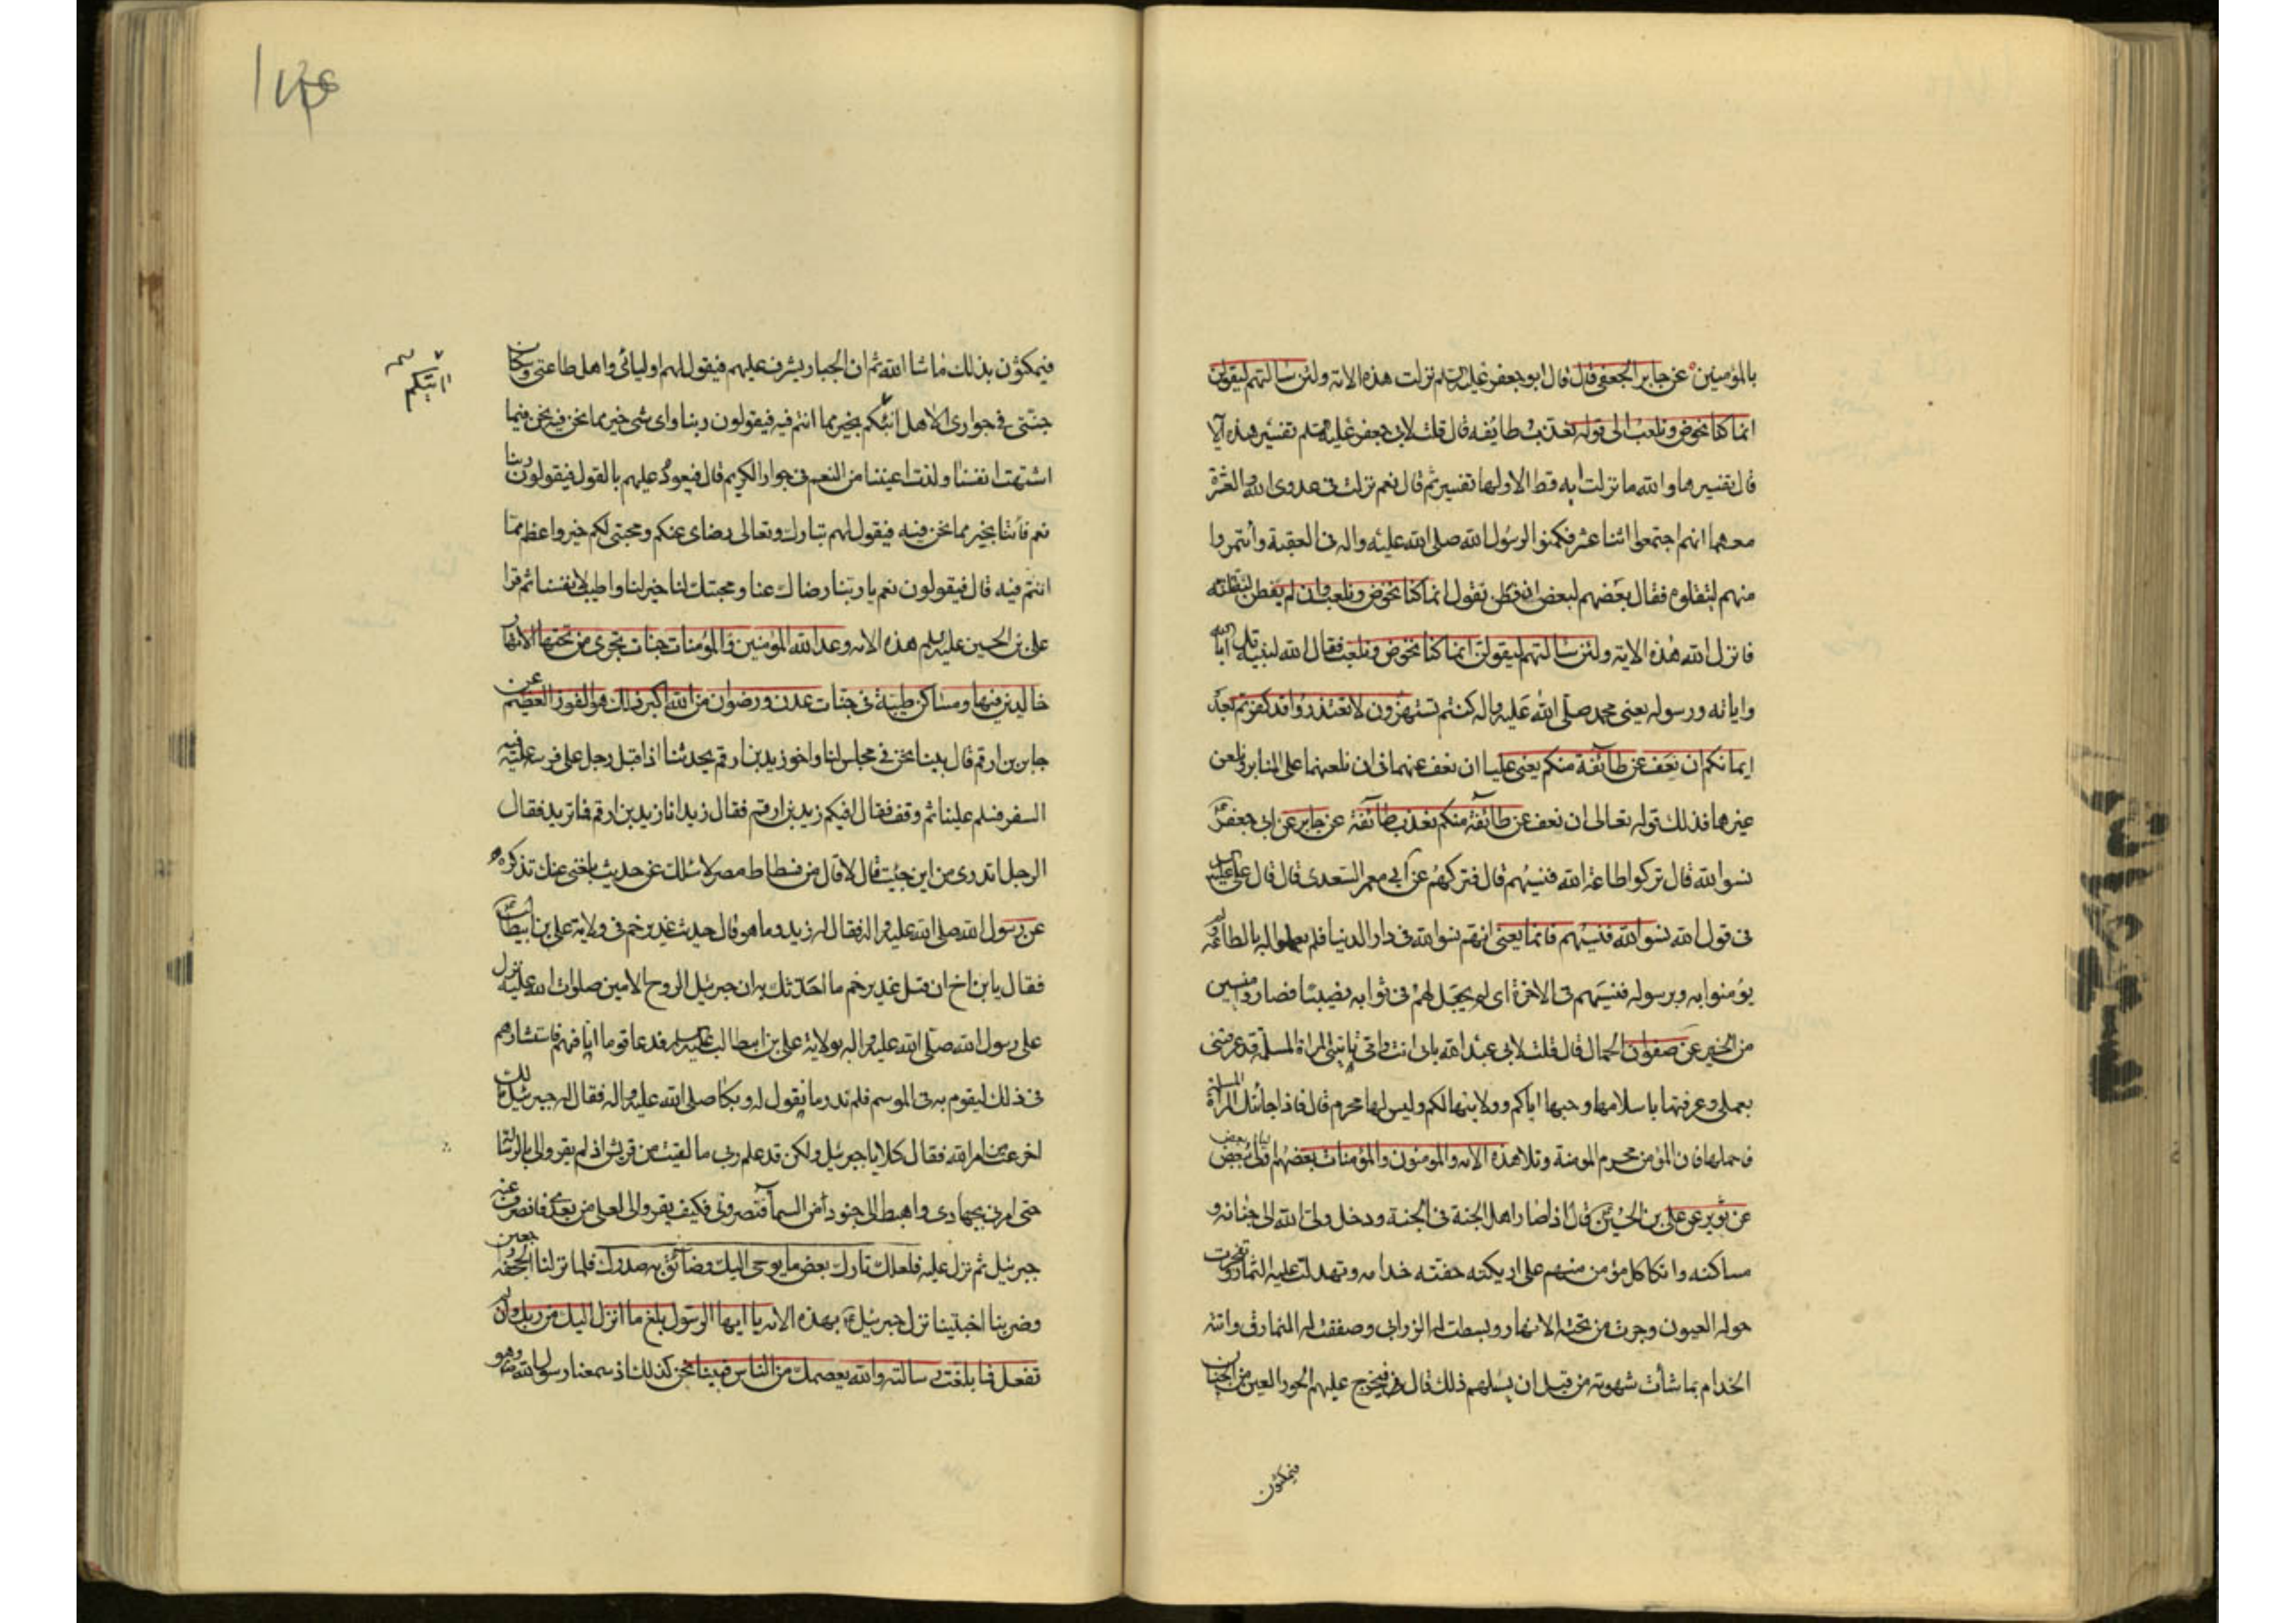 بالمؤمنين عن جابر الجعفى قال قال ابو جعفر عليه السلم نزلت هذه الاية ولئن سالتهم ليقولن
انما كنا نخوض ونلعب الى قوله نعذب طايفه قال قلت لابى جعفر عليه السلم تفسير هذه الآ
قال تفسيرها والله ما نزلت آيه قط الا ولها تفسير ثم قال نعم نزلت فى عدوى الله والعشرة
معهما انهم اجتمعوا اثنا عشر فكمنوا لرسول الله صلى الله عليه واله فى العقبة وأئتمروا
منهم ليقتلوه فقال بعضهم لبعض ان فطن نقول انما كنا نخوض ونلعب وان لم يفطن لنقتلنه
فانزل الله هذه الاية ولئن سالتهم ليقولن انما كنا نخوض ونلعب فقال الله لنبيه قل أبالله
واياته ورسوله يعنى محمد صلى الله عليه واله كنتم تستهزؤن لا تعتذروا قد كفرتم بعد
ايمانكم ان نعف عن طائفة منكم يعنى عليا ان نعف عنهما فى ان نلعنهما على المنابر ونلعن
غيرهما فذلك قوله تعالى ان نعف عن طائفة منكم نعذب طائفة عن جابر عن ابى جعفر
نسوا الله قال تركوا طاعة الله فنسيهم قال فتركهم عن أبى معمر السعدى قال قال على عليه السلم
فى قول الله نسوا الله فنسيهم فانما يعنى انهم نسوا الله فى دار الدنيا فلم يعملوا له بالطاعه ولم
يؤمنوا به وبرسوله فنسيهم فى الاخرة اى لم يجعل لهم فى ثوابه نصيبا فصاروا منسيين
من الخير عن صفوان الجمال قال قلت لابى عبد الله بابى انت وامى ياتينى المراة المسلمة قد عرفتنى
بعملى وعرفتها باسلامها وحبها اياكم وولايتها لكم وليس لها محرم قال فاذا جائتك المرأة المسلمة
فاحملها فان المؤمن محرم المومنة وتلا هذه الاية والمومنون والمؤمنات بعضهم اولياء بعض
عن ثوير عن على بن الحسين قال اذا صار اهل الجنة فى الجنة ودخل ولى الله الى جنانه و
مساكنه واتكا كل مؤمن منهم على اريكته حفته خدامه وتهدلت عليه الثمار وتفجرت
حوله العيون وجرت من تحته الانهار وبسطت له الزرابى وصففت له النمارق واتته
الخدام بما شأت شهوته من قبل ان يسلهم ذلك قال فيخرج عليهم الحور العين من الجنان
فيمكثون
فيمكثون بذلك ما شا الله ثم ان الجبار يشرف عليهم فيقول لهم اوليائى واهل طاعتى وسكان
جنتى فى جوارى الا هل أنبئكم بخير مما انتم فيه فيقولون ربنا واى شى خير مما نحن فيه نحن فيما
اشتهت انفسنا ولذت اعيننا من النعم فى جوار الكريم قال فيعود عليهم بالقول فيقولون ربنا
نعم فأتنا بخير مما نحن فيه فيقول لهم تبارك وتعالى رضاى عنكم ومحبتى لكم خير واعظم مما
انتم فيه قال فيقولون نعم يا ربنا رضاك عنا ومحبتك لنا خير لنا واطيب لانفسنا ثم قرا
على بن الحسين عليه السلم هذه الايه وعد الله المؤمنين والمؤمنات جنات تجرى من تحتها الانهار
خالدين فيها ومساكن طيبة فى جنات عدن ورضوان من الله اكبر ذلك هو الفوز العظيم عن
جابر بن ارقم قال بينا نحن فى مجلس لنا واخو زيد بن ارقم يحدثنا اذ اقبل رجل على فرسه عليه
السفر فسلم علينا ثم وقف فقال افيكم زيد بن ارقم فقال زيد انا زيد بن ارقم فما تريد فقال
الرجل اتدرى من اين جئت قال لا قال من فسطاط مصر لاسئلك عن حديث بلغنى عنك تذكره
عن رسول الله صلى الله عليه واله فقال له زيد وما هو قال حديث غدير خم فى ولاية على بن ابيطالب
فقال يا بن اخ ان قبل غدير خم ما احدثك به ان جبرئيل الروح الامين صلوات الله عليه نزل
على رسول الله صلى الله عليه واله بولاية على بن ابيطالب عليه السلم فدعا قوما انا فيهم فاستشارهم
فى ذلك ليقوم به فى الموسم فلم ندر ما نقول له وبكا صلى الله عليه واله فقال له جبرئيل مالك
اجزعت من امر الله فقال كلا يا جبرئيل ولكن قد علم ربى ما لقيت من قريش اذ لم يقروا لى بالرسالة
حتى امرنى بجهادى واهبط الى جنودا من السمآ فنصرونى فكيف يقروا لى لعلى من بعدى فانصرف عنه
جبرئيل ثم نزل عليه فلعلك تارك بعض ما يوحى اليك وضآئق به صدرك فلما نزلنا الجحفه راجعين
وضربنا اخبيتنا نزل جبرئيل بهذه الايه يا ايها الرسول بلغ ما انزل اليك من ربك وان لم
تفعل فما بلغت رسالته والله يعصمك من الناس فبينا نحن كذلك اذ سمعنا رسول الله وهو